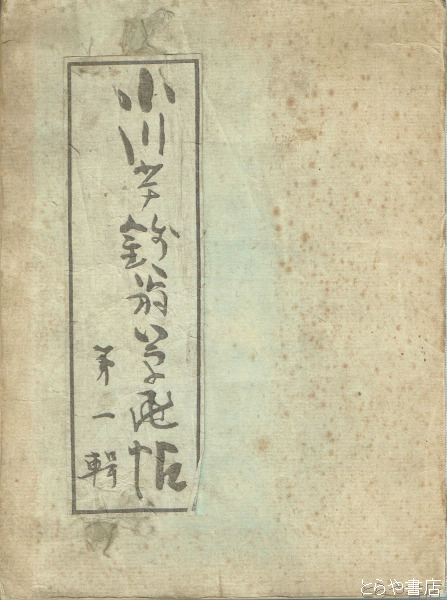 小川芋銭翁草画帖
第一輯
とらや書店